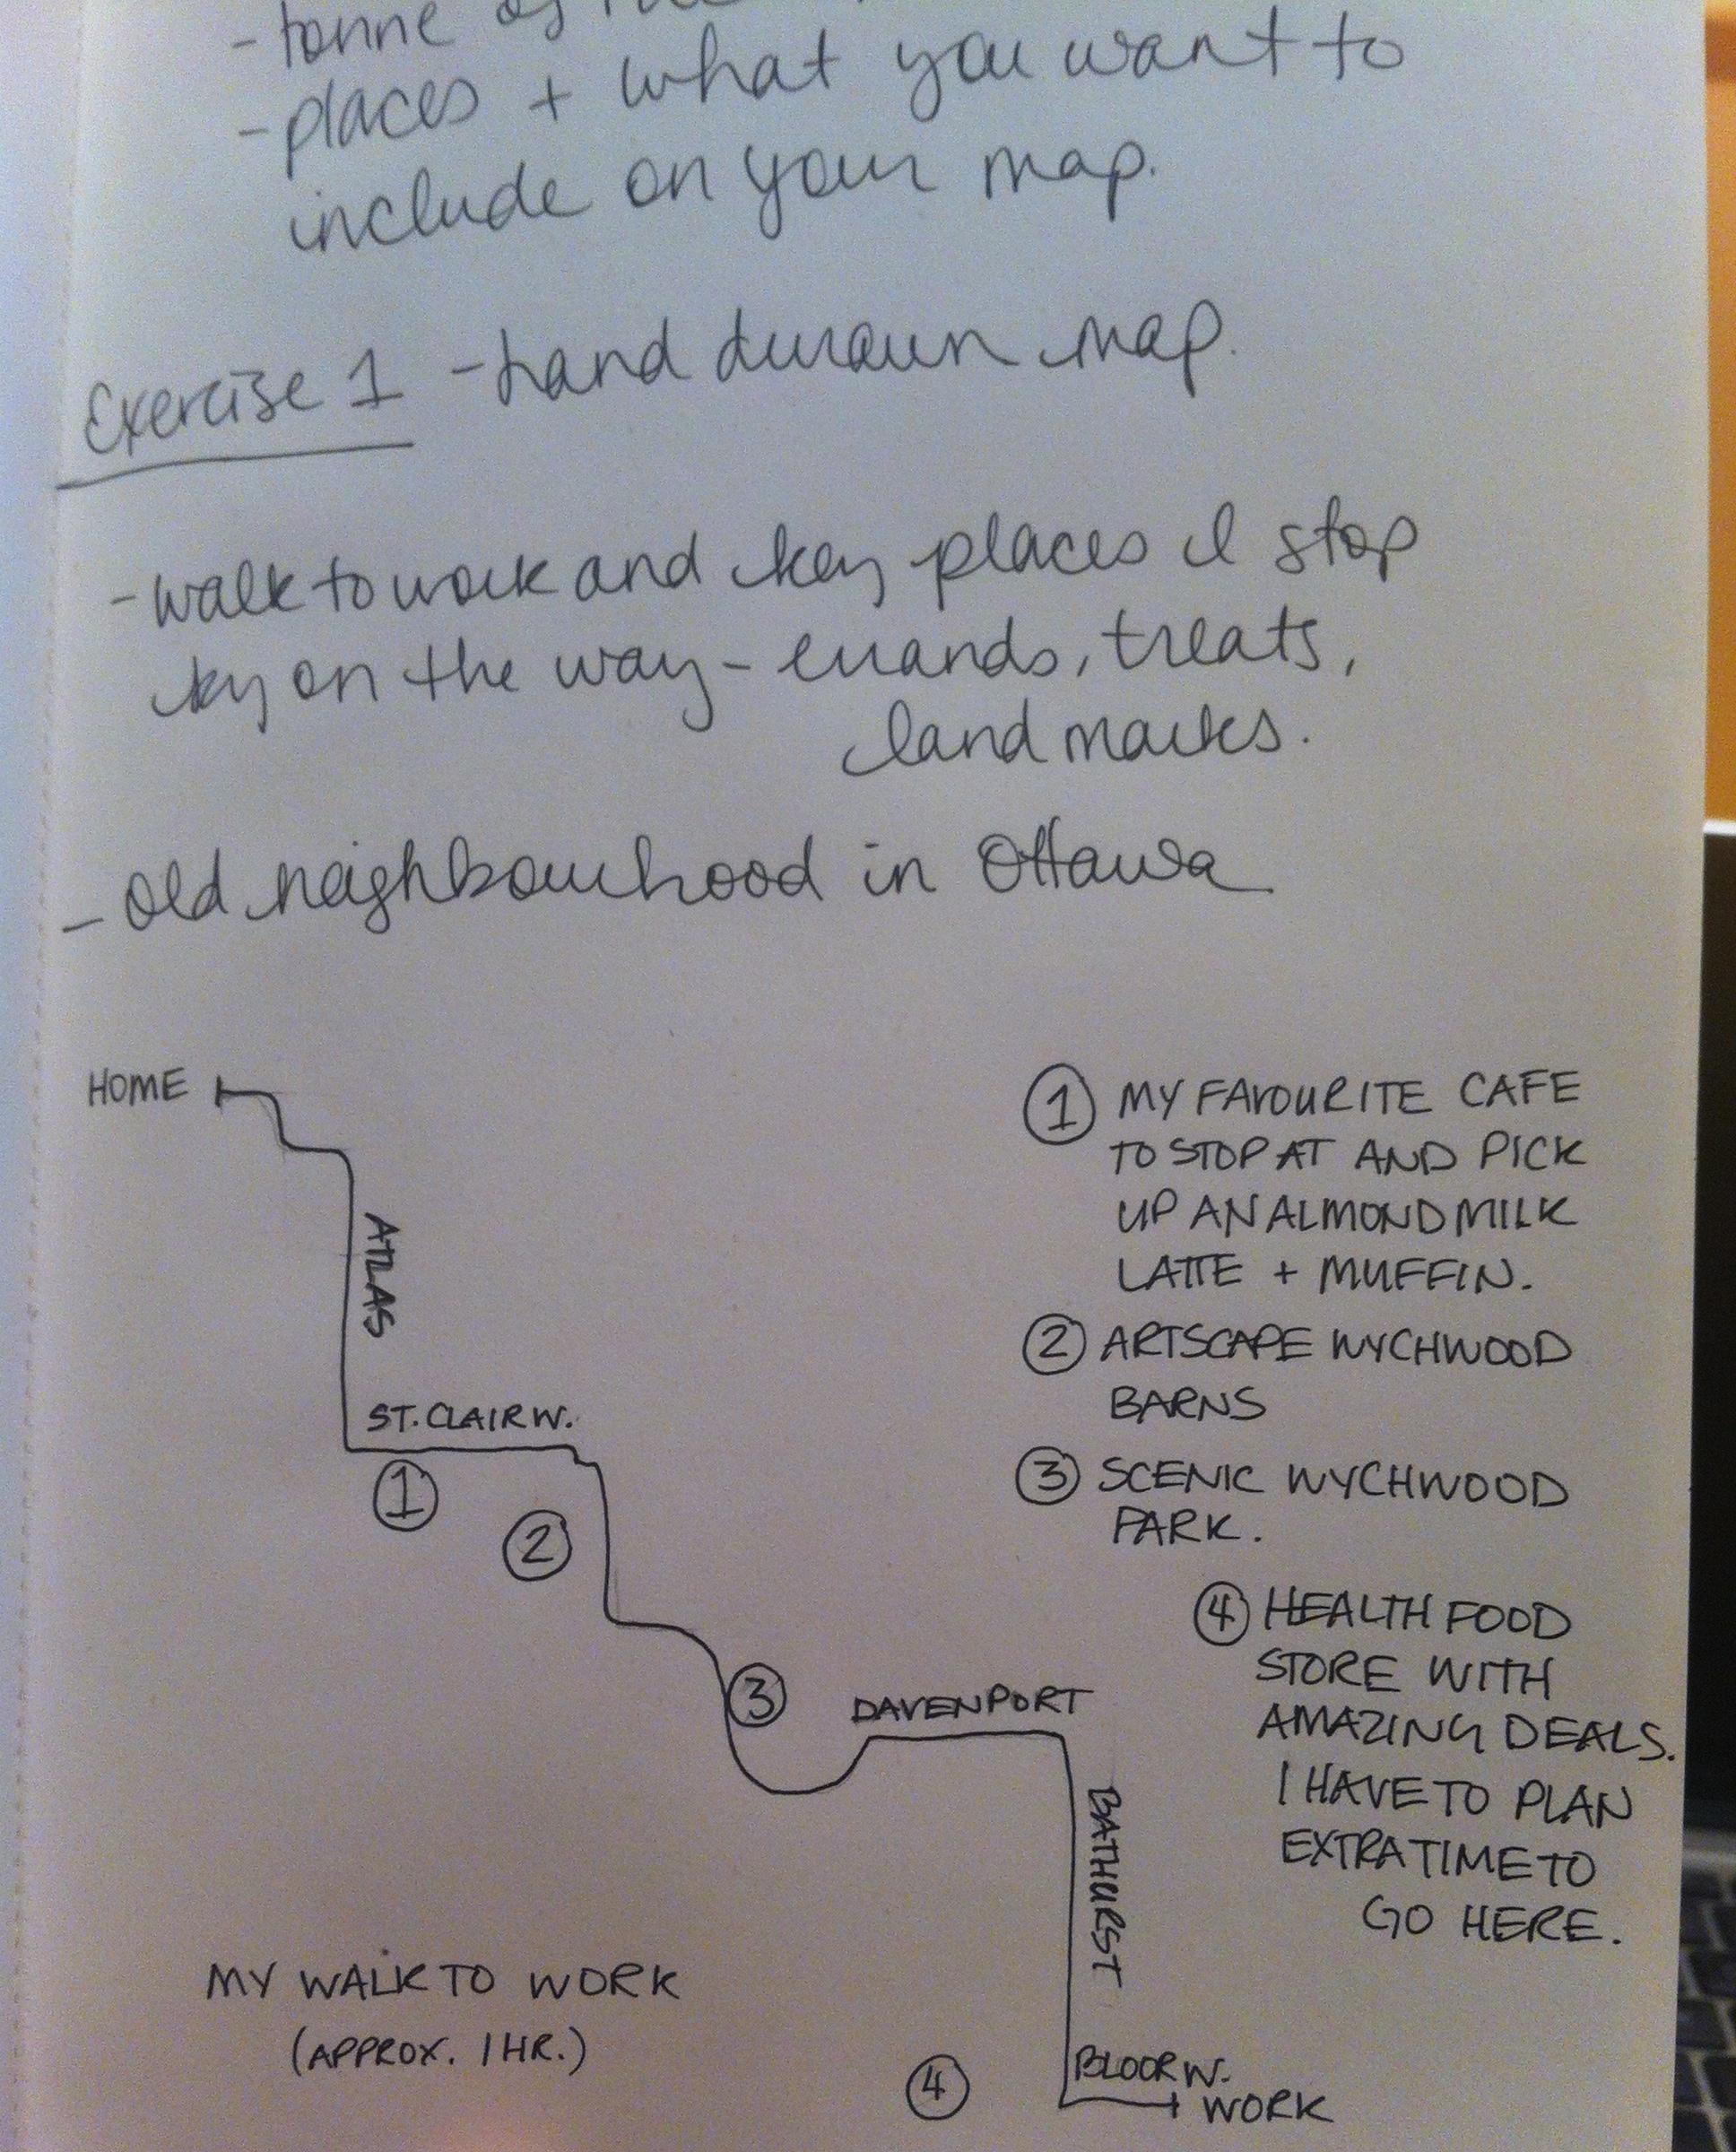 - tonne of
- places + what you want to
include on your map.
Exercise 1 - hand drawn map.
- walk to work and key places I stop
by on the way - errands, treats,
landmarks.
- old neighbourhood in Ottawa
HOME
ATLAS
ST. CLAIR W.
1
2
3
DAVENPORT
BATHURST
BLOOR W.
4
WORK
MY WALK TO WORK
(APPROX. 1 HR.)
1 MY FAVOURITE CAFE
TO STOP AT AND PICK
UP AN ALMOND MILK
LATTE + MUFFIN.
2 ARTSCAPE WYCHWOOD
BARNS
3 SCENIC WYCHWOOD
PARK.
4 HEALTH FOOD
STORE WITH
AMAZING DEALS.
I HAVE TO PLAN
EXTRA TIME TO
GO HERE.